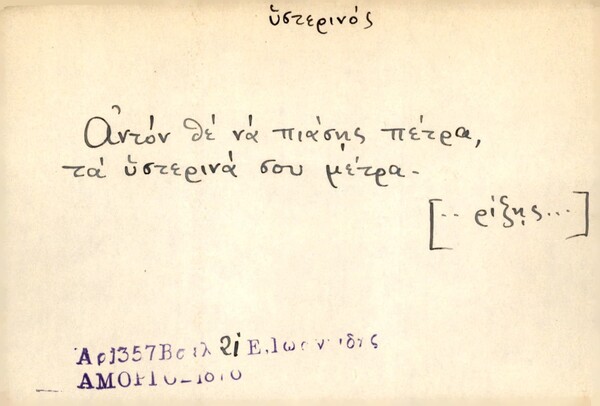 ὑστερινός
Ἀντόν θέ νά πιάσῃς πέτρα,
τά ὕστερινά σου μέτρα.
[.. ρίξῃς...]
Αρ1357Βαλ 21 Ε.Ιωαννίδης
ΑΜΟΡΓΟΣ